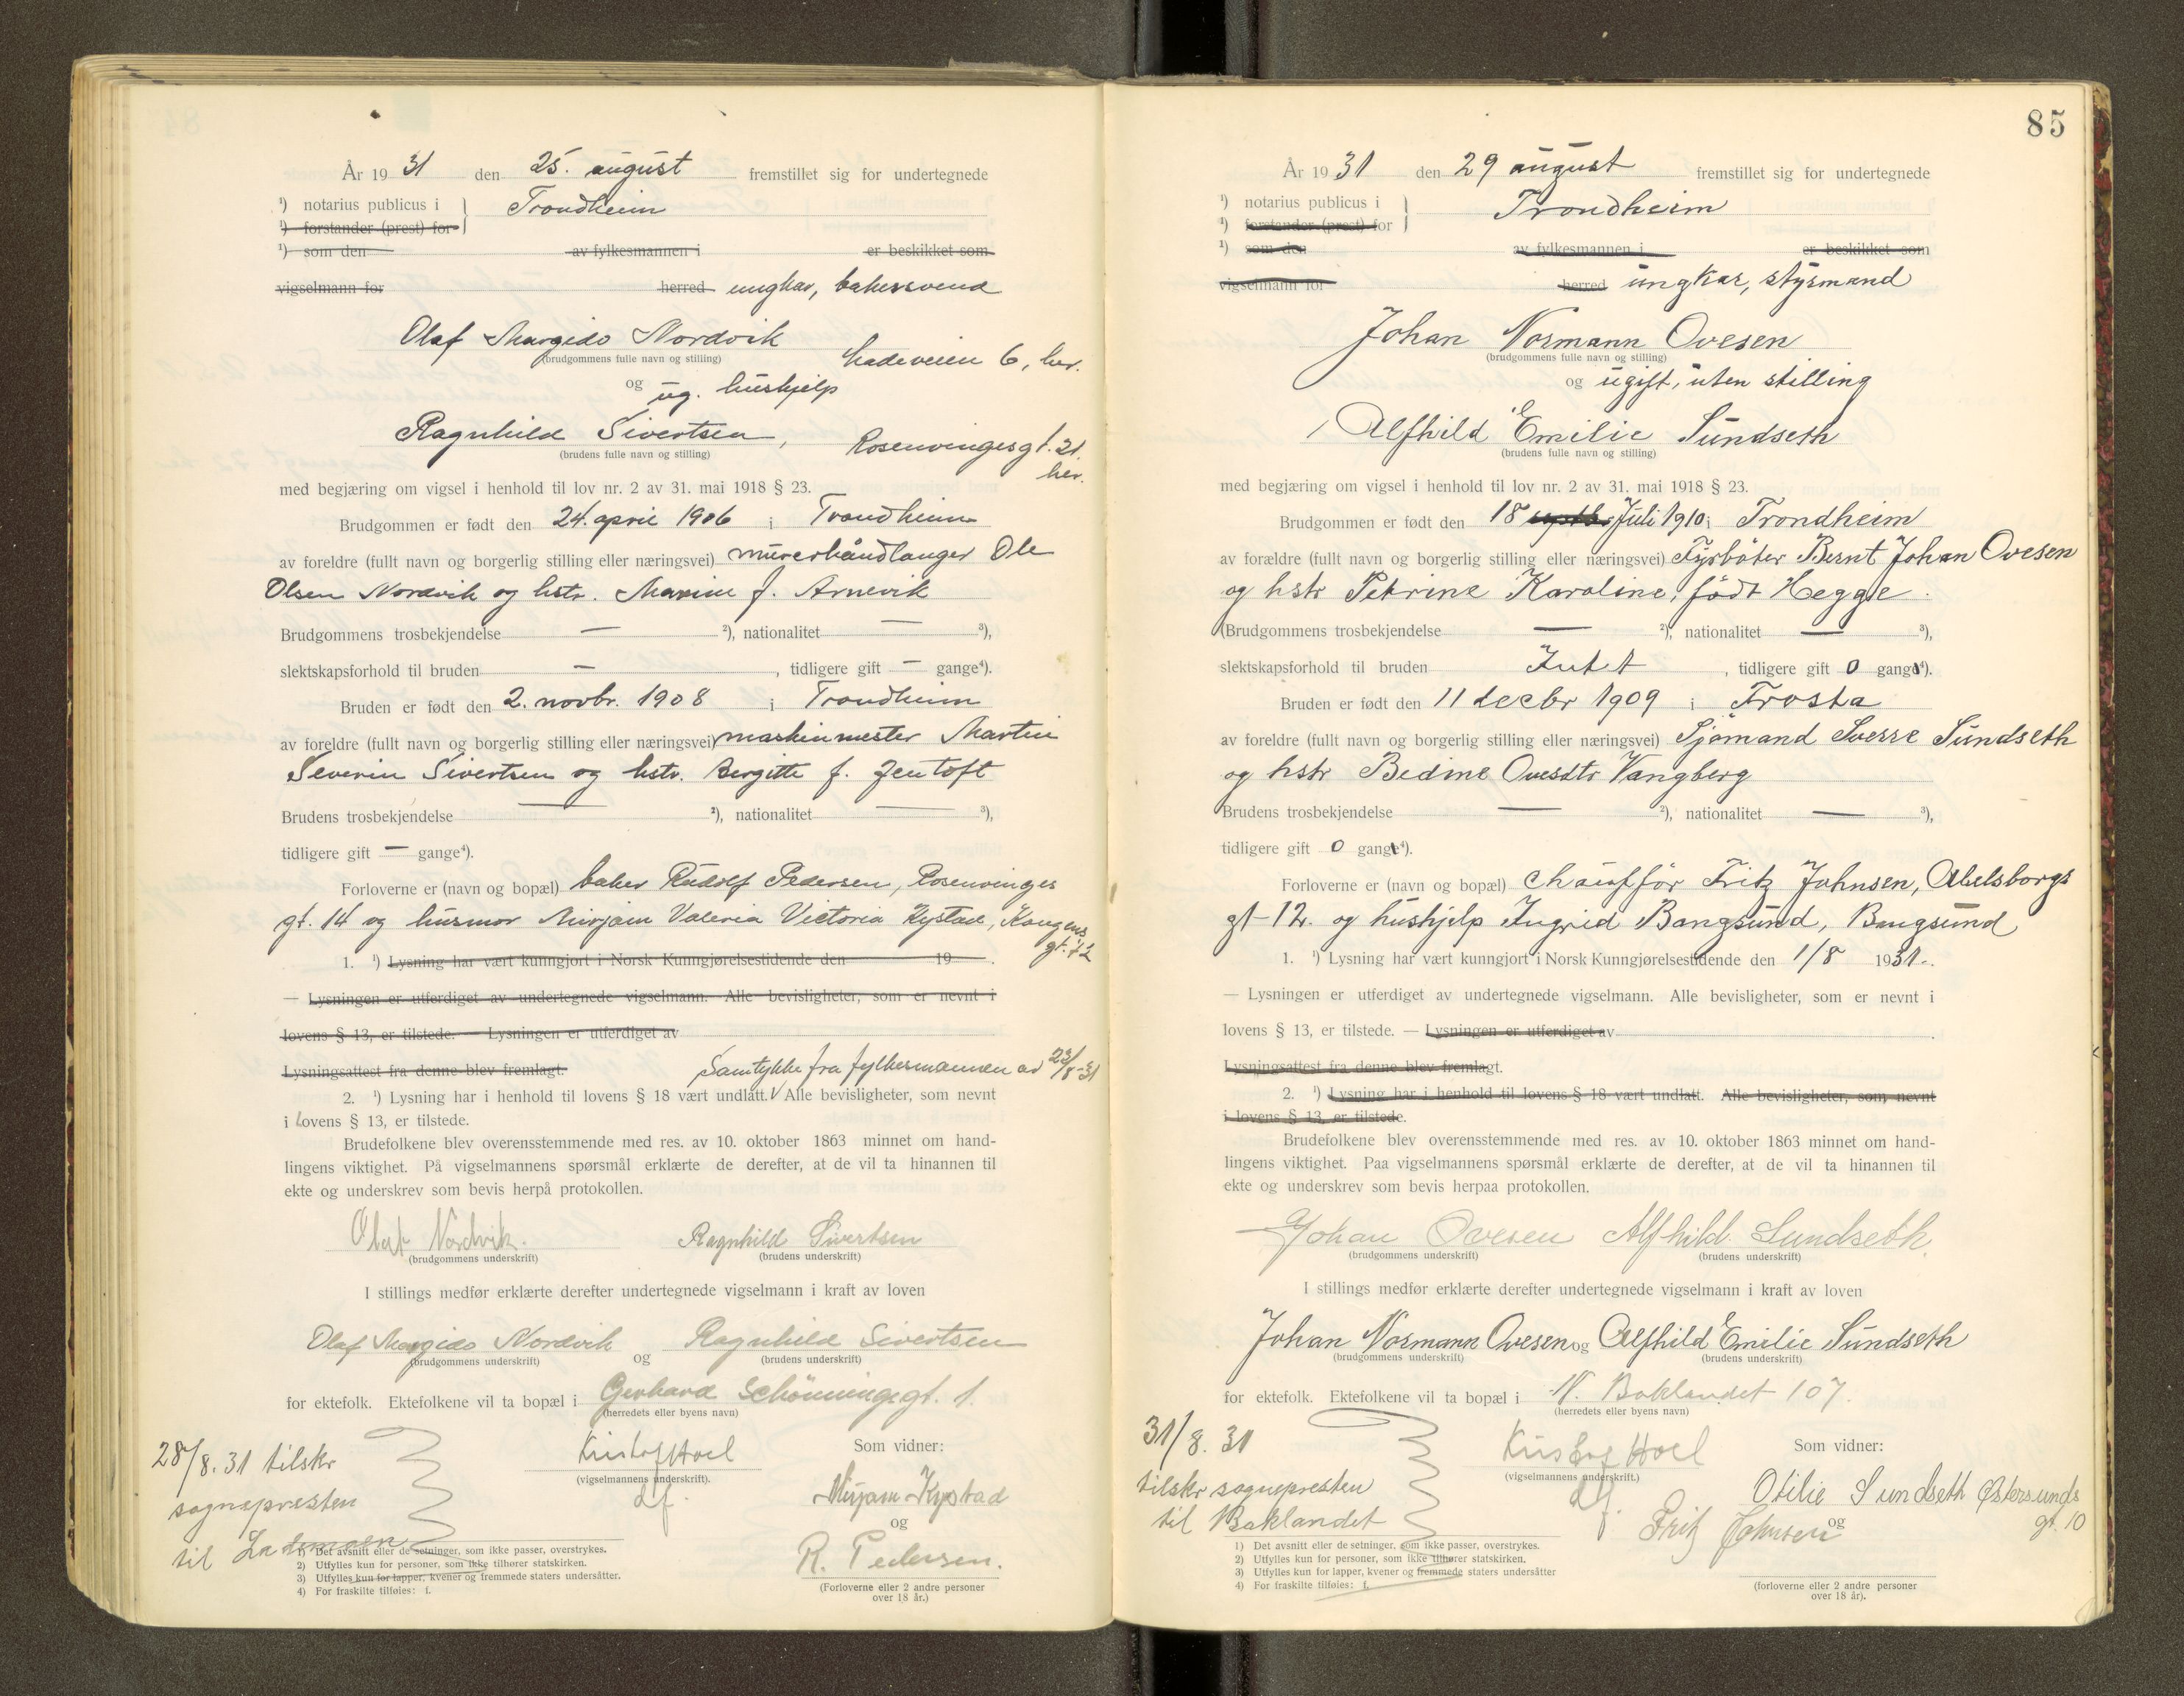 År 1931 den 25. august fremstillet sig for undertegnede
¹) notarius publicus i } Trondheim
¹) forstander (prest) for
¹) som den av fylkesmannen i er beskikket som
vigselmann for herred ungkar, bakersvend
Olaf Margido Nordvik Ladeveien 6, her.
(brudgommens fulle navn og stilling)
og ug. hushjelp
Ragnhild Sivertsen, Rosenvingesgt. 21.
(brudens fulle navn og stilling) her.
med begjæring om vigsel i henhold til lov nr. 2 av 31. mai 1918 § 23.
Brudgommen er født den 24. april 1906 i Trondheim
av foreldre (fullt navn og borgerlig stilling eller næringsvei) murerhåndlanger Ole
Olsen Nordvik og hstr. Maxine f. Arnevik
Brudgommens trosbekjendelse — ²), nationalitet — ³),
slektskapsforhold til bruden —, tidligere gift — gange⁴).
Bruden er født den 2. novbr. 1908 i Trondheim
av foreldre (fullt navn og borgerlig stilling eller næringsvei) maskinmester Martin
Severin Sivertsen og hstr. Bergitte f. Zentoft
Brudens trosbekjendelse — ²), nationalitet — ³),
tidligere gift — gange⁴).
Forloverne er (navn og bopæl) baker Rudolf Pedersen, Rosenvinges
gt. 14 og husmor Mirjam Valeria Victoria Kystad, Kongens
gt. 72
1. ¹) Lysning har vært kunngjort i Norsk Kunngjørelsestidende den 19 .
— Lysningen er utferdiget av undertegnede vigselmann. Alle bevisligheter, som er nevnt i
lovens § 13, er tilstede. — Lysningen er utferdiget av
Lysningsattest fra denne blev fremlagt. Samtykke fra fylkesmannen av 23/8-31
2. ¹) Lysning har i henhold til lovens § 18 vært undlatt. √ Alle bevisligheter, som nevnt
i lovens § 13, er tilstede.
Brudefolkene blev overensstemmende med res. av 10. oktober 1863 minnet om hand-
lingens viktighet. På vigselmannens spørsmål erklærte de derefter, at de vil ta hinannen til
ekte og underskrev som bevis herpå protokollen.
Olaf Nordvik. Ragnhild Sivertsen
(brudgommens underskrift) (brudens underskrift)
I stillings medfør erklærte derefter undertegnede vigselmann i kraft av loven
Olaf Margido Nordvik og Ragnhild Sivertsen
(brudgommens underskrift) (brudens underskrift)
for ektefolk. Ektefolkene vil ta bopæl i Gerhard Schönningsgt. 1.
(herredets eller byens navn)
28/8.31 tilskr Kristof Hoel Som vidner:
(vigselmannens underskrift).
sogneprsten df. Mirjam Kystad
og
til Lademoen R. Pedersen.
1) Det avsnitt eller de setninger, som ikke passer, overstrykes.
2) Utfylles kun for personer, som ikke tilhører statskirken.
3) Utfylles kun for lapper, kvener og fremmede staters undersåtter.
4) For fraskilte tilføies: f.
(Forloverne eller 2 andre personer
over 18 år.)
85
År 1931 den 29 august fremstillet sig for undertegnede
¹) notarius publicus i } Trondheim
¹) forstander (prest) for
¹) som den av fylkesmannen i er beskikket som
vigselmann for herred ungkar, styrmand
Johan Normann Ovesen
(brudgommens fulle navn og stilling)
og ugift, uten stilling
Alfhild Emilie Sundseth
(brudens fulle navn og stilling)
med begjæring om vigsel i henhold til lov nr. 2 av 31. mai 1918 § 23.
Brudgommen er født den 18 septbr Juli 1910 i Trondheim
av forældre (fullt navn og borgerlig stilling eller næringsvei) Fyrböter Bernt Johan Ovesen
og hstr Petrine Karoline, född Hegge.
Brudgommens trosbekjendelse — ²), nationalitet — ³),
slektskapsforhold til bruden Intet, tidligere gift 0 gange⁴).
Bruden er født den 11 decbr 1909 i Frosta
av foreldre (fullt navn og borgerlig stilling eller næringsvei) Sjömand Sverre Sundseth
og hstr Bedine Ovesdtr Vangberg
Brudens trosbekjendelse — ²), nationalitet — ³),
tidligere gift 0 gange⁴).
Forloverne er (navn og bopæl) Chaufför Fritz Johnsen, Abelsborgs
gt 12. og hushjelp Ingrid Bangsund, Bangsund
1. ¹) Lysning har vært kunngjort i Norsk Kunngjørelsestidende den 1/8 1931.
— Lysningen er utferdiget av undertegnede vigselmann. Alle bevisligheter, som er nevnt i
lovens § 13, er tilstede. — Lysningen er utferdiget av .
Lysningsattest fra denne blev fremlagt.
2. ¹) Lysning har i henhold til lovens § 18 vært undlatt. Alle bevisligheter, som nevnt
i lovens § 13, er tilstede.
Brudefolkene blev overensstemmende med res. av 10. oktober 1863 minnet om hand-
lingens viktighet. Paa vigselmannens spørsmål erklærte de derefter, at de vil ta hinannen til
ekte og underskrev som bevis herpaa protokollen.
Johan Ovesen Alfhild Sundseth.
(brudgommens underskrift) (brudens underskrift)
I stillings medfør erklærte derefter undertegnede vigselmann i kraft av loven
Johan Normann Ovesen og Alfhild Emilie Sundseth
(brudgommens underskrift) (brudens underskrift)
for ektefolk. Ektefolkene vil ta bopæl i N. Baklandet 107.
(herredets eller byens navn)
31/8. 31 Kristof Hoel Som vidner:
(vigselmannens underskrift.)
tilskr sognepresten df. Otilie Sundseth Østersunds
gt. 10
og
til Baklandet Fritz Johnsen
1) Det avsnitt eller de setninger, som ikke passer, overstrykes.
2) Utfylles kun for personer, som ikke tilhører statskirken.
3) Utfylles kun for lapper, kvener og fremmede staters undersåtter
4) For fraskilte tilføies: f.
(forloverne eller 2 andre personer
over 18 år).